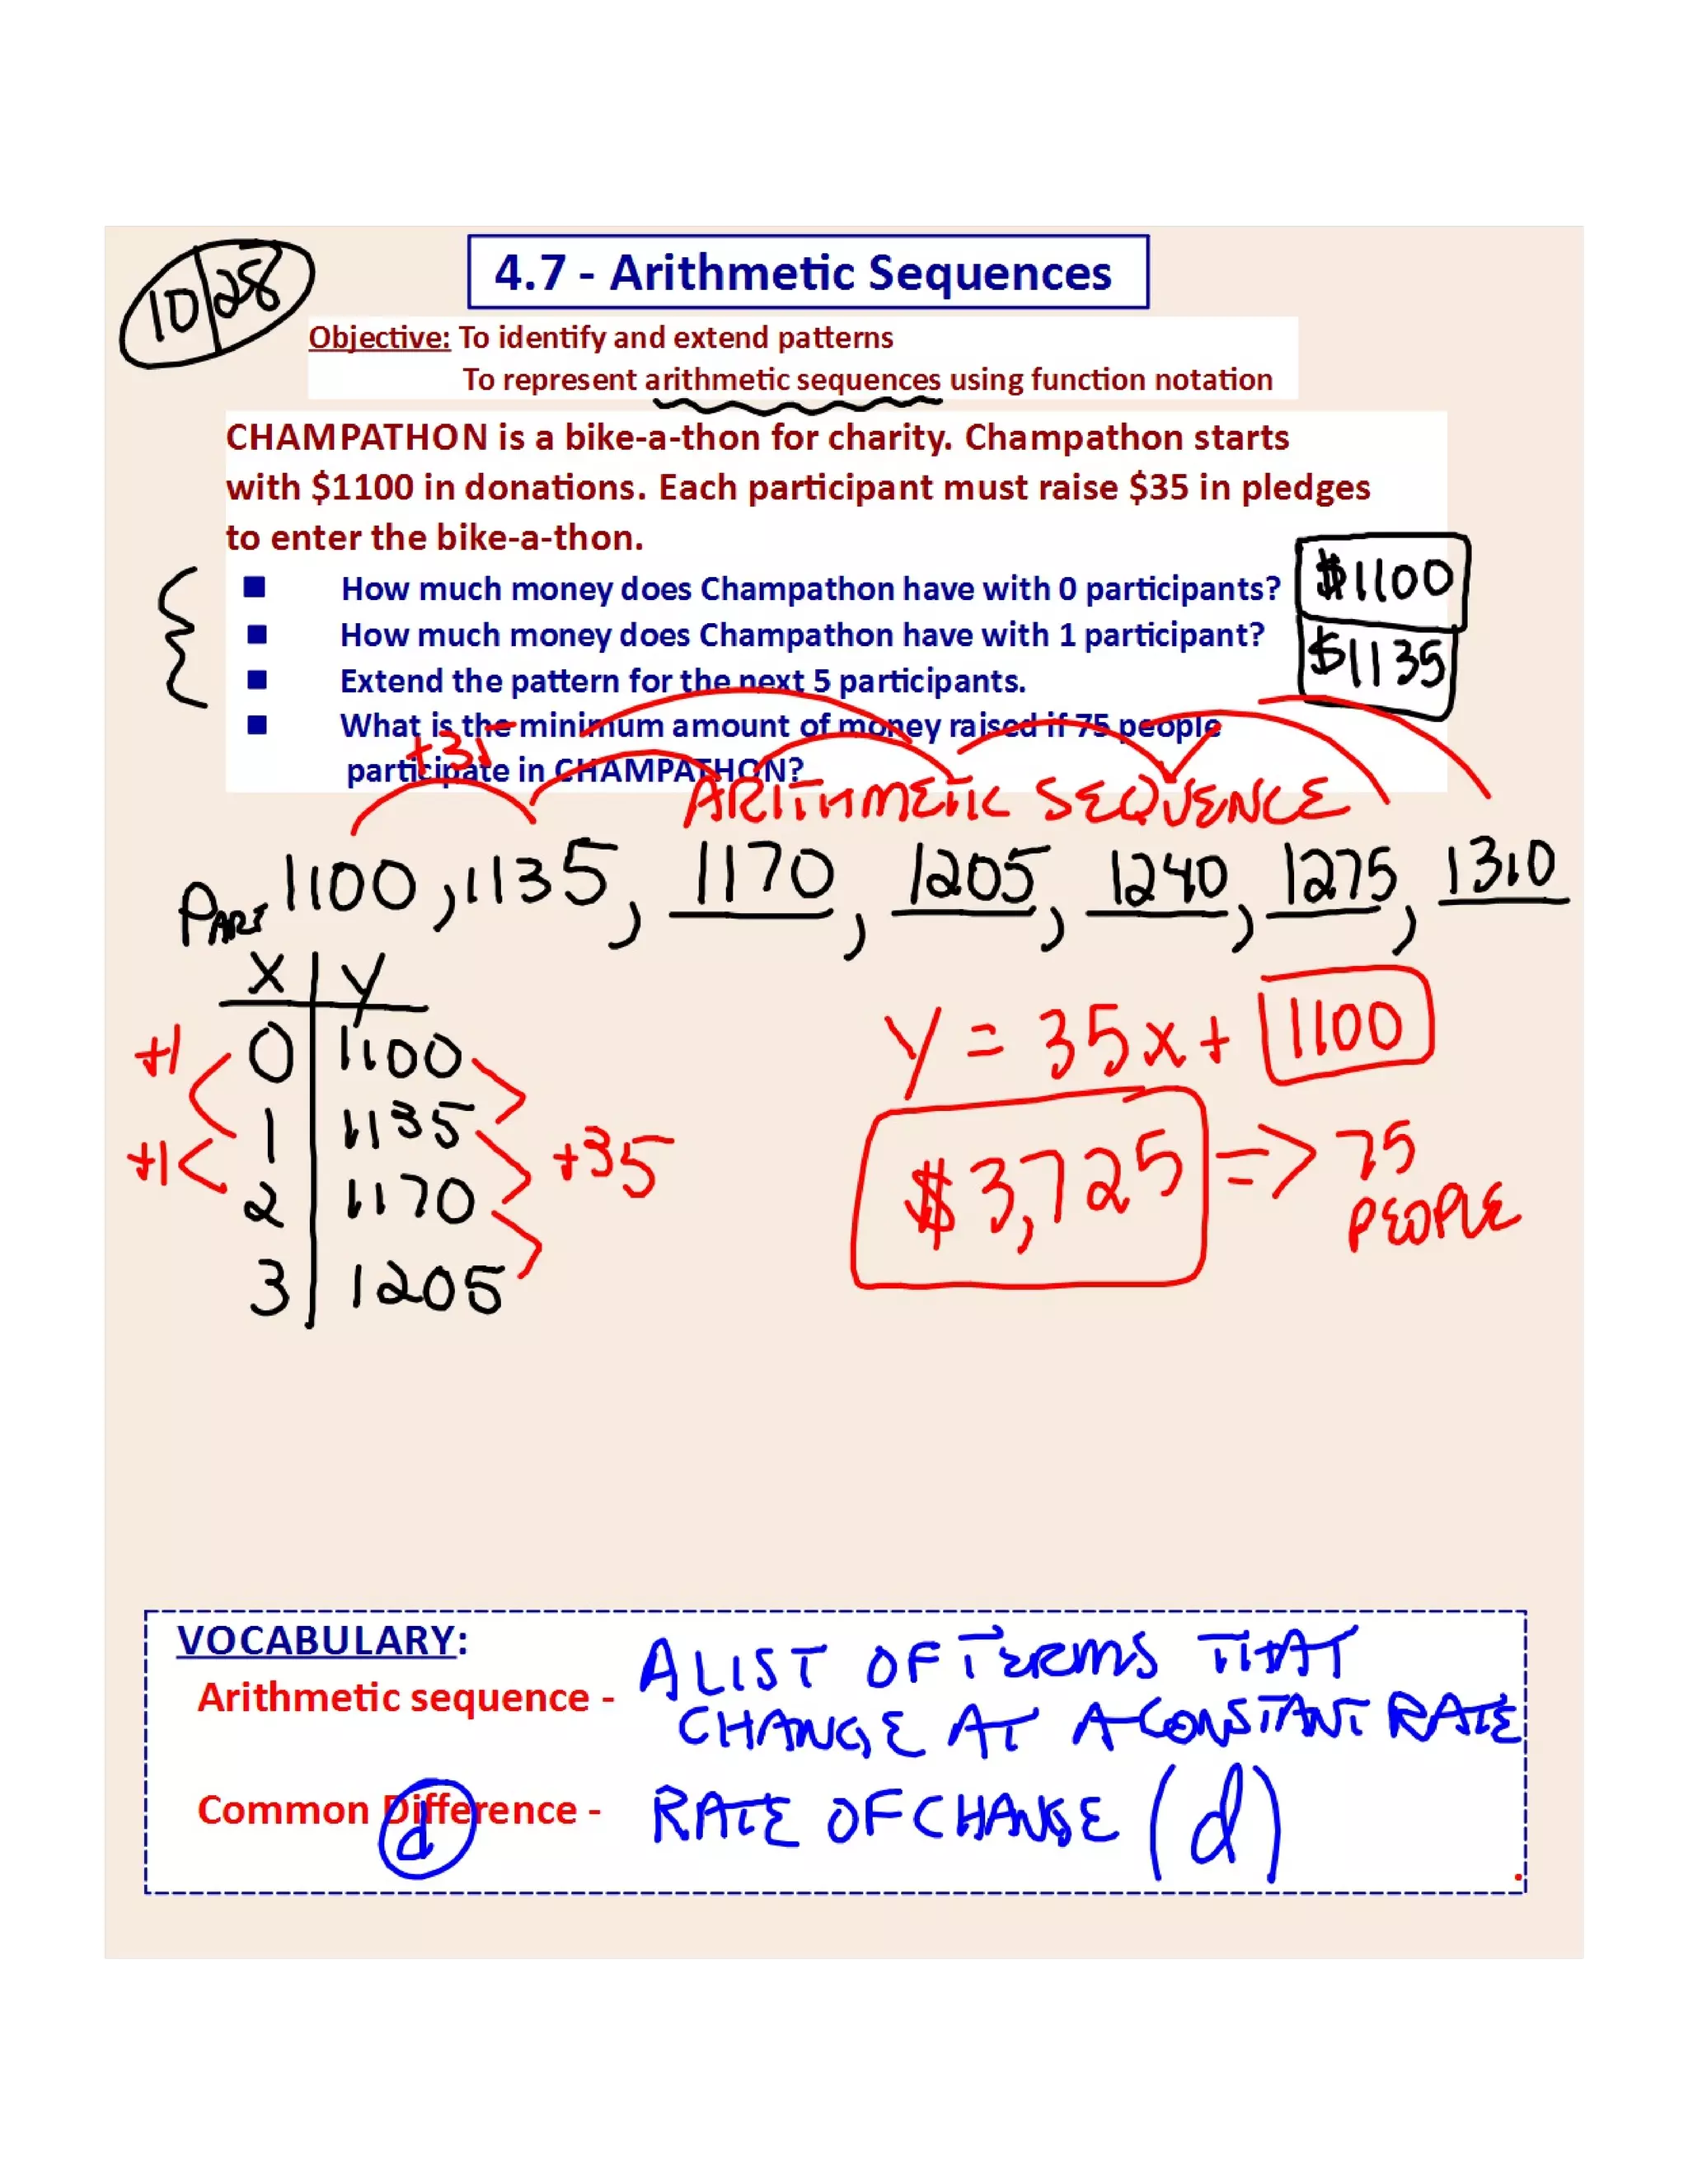 10 28
4.7 - Arithmetic Sequences
Objective: To identify and extend patterns
To represent arithmetic sequences using function notation
CHAMPATHON is a bike-a-thon for charity. Champathon starts
with $1100 in donations. Each participant must raise $35 in pledges
to enter the bike-a-thon.
■ How much money does Champathon have with 0 participants? $1100
■ How much money does Champathon have with 1 participant? $1135
■ Extend the pattern for the next 5 participants.
■ What is the minimum amount of money raised if 75 people
participate in CHAMPATHON?
ARITHMETIC SEQUENCE
1100, 1135, 1170, 1205, 1240, 1275, 1310
PART.
x y
0 1100
1 1135
2 1170
3 1205
+1
+1
+35
y = 35x + 1100
$3,725 => 75
PEOPLE
VOCABULARY:
Arithmetic sequence - A LIST OF TERMS THAT
CHANGE AT A CONSTANT RATE
Common Difference - RATE OF CHANGE (d)
d